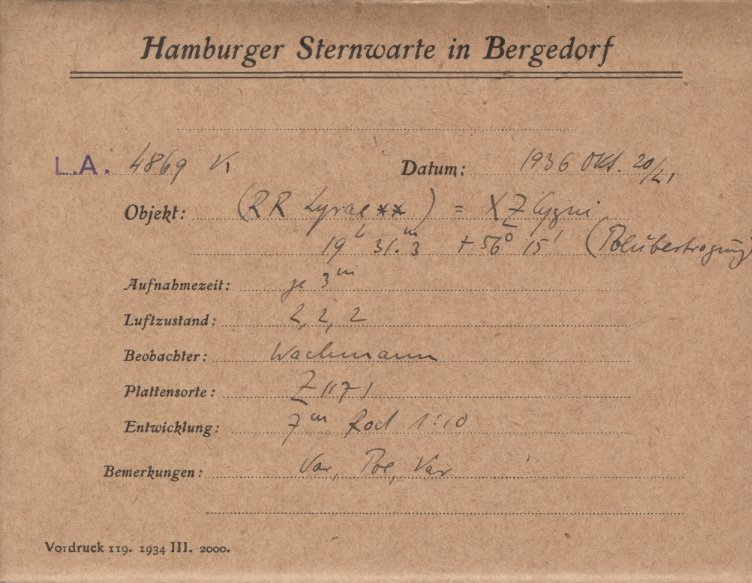 Hamburger Sternwarte in Bergedorf
L.A. 4869 V1 Datum: 1936 Okt. 20/21
Objekt: (RR Lyrae ** ) = XZ Cygni
19h 31.m3 + 56° 15' (Polübertragung)
Aufnahmezeit: je 3m
Luftzustand: 2, 2, 2
Beobachter: Wachmann
Plattensorte: Z 1171
Entwicklung: 7m Rod 1:10
Bemerkungen: Var, Pol, Var
Vordruck 119. 1934 III. 2000.